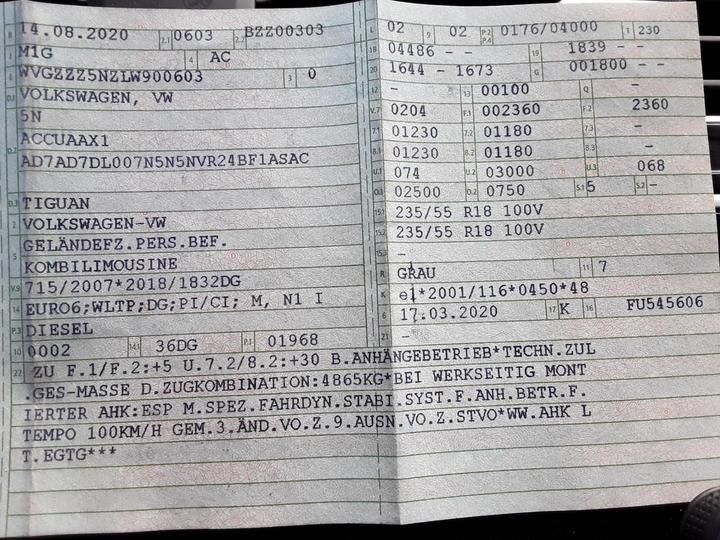 B 14.08.2020 2.1 0603 2.2 BZZ00303
J M1G 4 AC
E WVGZZZ5NZLW900603 3 0
D.1 VOLKSWAGEN, VW
5N
D.2 ACCUAAX1
AD7AD7DL007N5N5NVR24BF1ASAC
D.3 TIGUAN
2 VOLKSWAGEN-VW
GELÄNDEFZ.PERS.BEF.
5 KOMBILIMOUSINE
V.9 715/2007*2018/1832DG
14 EURO6;WLTP;DG;PI/CI; M, N1 I
P.3 DIESEL
10 0002 14.1 36DG P.1 01968
L 02 9 02 P.2 P.4 0176/04000 T 230
18 04486 - - 19 1839 - -
20 1644 - 1673 G 001800 - -
12 - 13 00100 Q -
V.7 0204 F.1 002360 F.2 2360
7.1 01230 7.2 01180 7.3 -
8.1 01230 8.2 01180 8.3 -
U.1 074 U.2 03000 U.3 068
O.1 02500 O.2 0750 S.1 5 S.2 -
15.1 235/55 R18 100V
15.2 235/55 R18 100V
15.3 -
R GRAU 11 7
K e1*2001/116*0450*48
6 17.03.2020 17 K 16 FU545606
21 -
22 ZU F.1/F.2:+5 U.7.2/8.2:+30 B.ANHÄNGEBETRIEB*TECHN.ZUL
.GES-MASSE D.ZUGKOMBINATION:4865KG*BEI WERKSEITIG MONT
IERTER AHK:ESP M.SPEZ.FAHRDYN.STABI.SYST.F.ANH.BETR.F.
TEMPO 100KM/H GEM.3.ÄND.VO.Z.9.AUSN.VO.Z.STVO*WW.AHK L
T.EGTG***